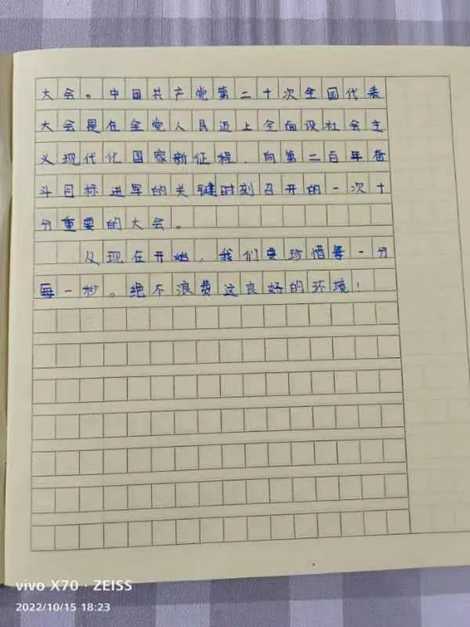 大会。中国共产党第二十次全国代表
大会是在全党人民迈上全面设社会主
义现代化国家新征程、向第二百年奋
斗目标进军的关键时刻召开的一次十
分重要的大会。
从现在开始，我们要珍惜每一分
每一秒。绝不浪费这良好的环境！
vivo X70 · ZEISS
2022/10/15 18:23